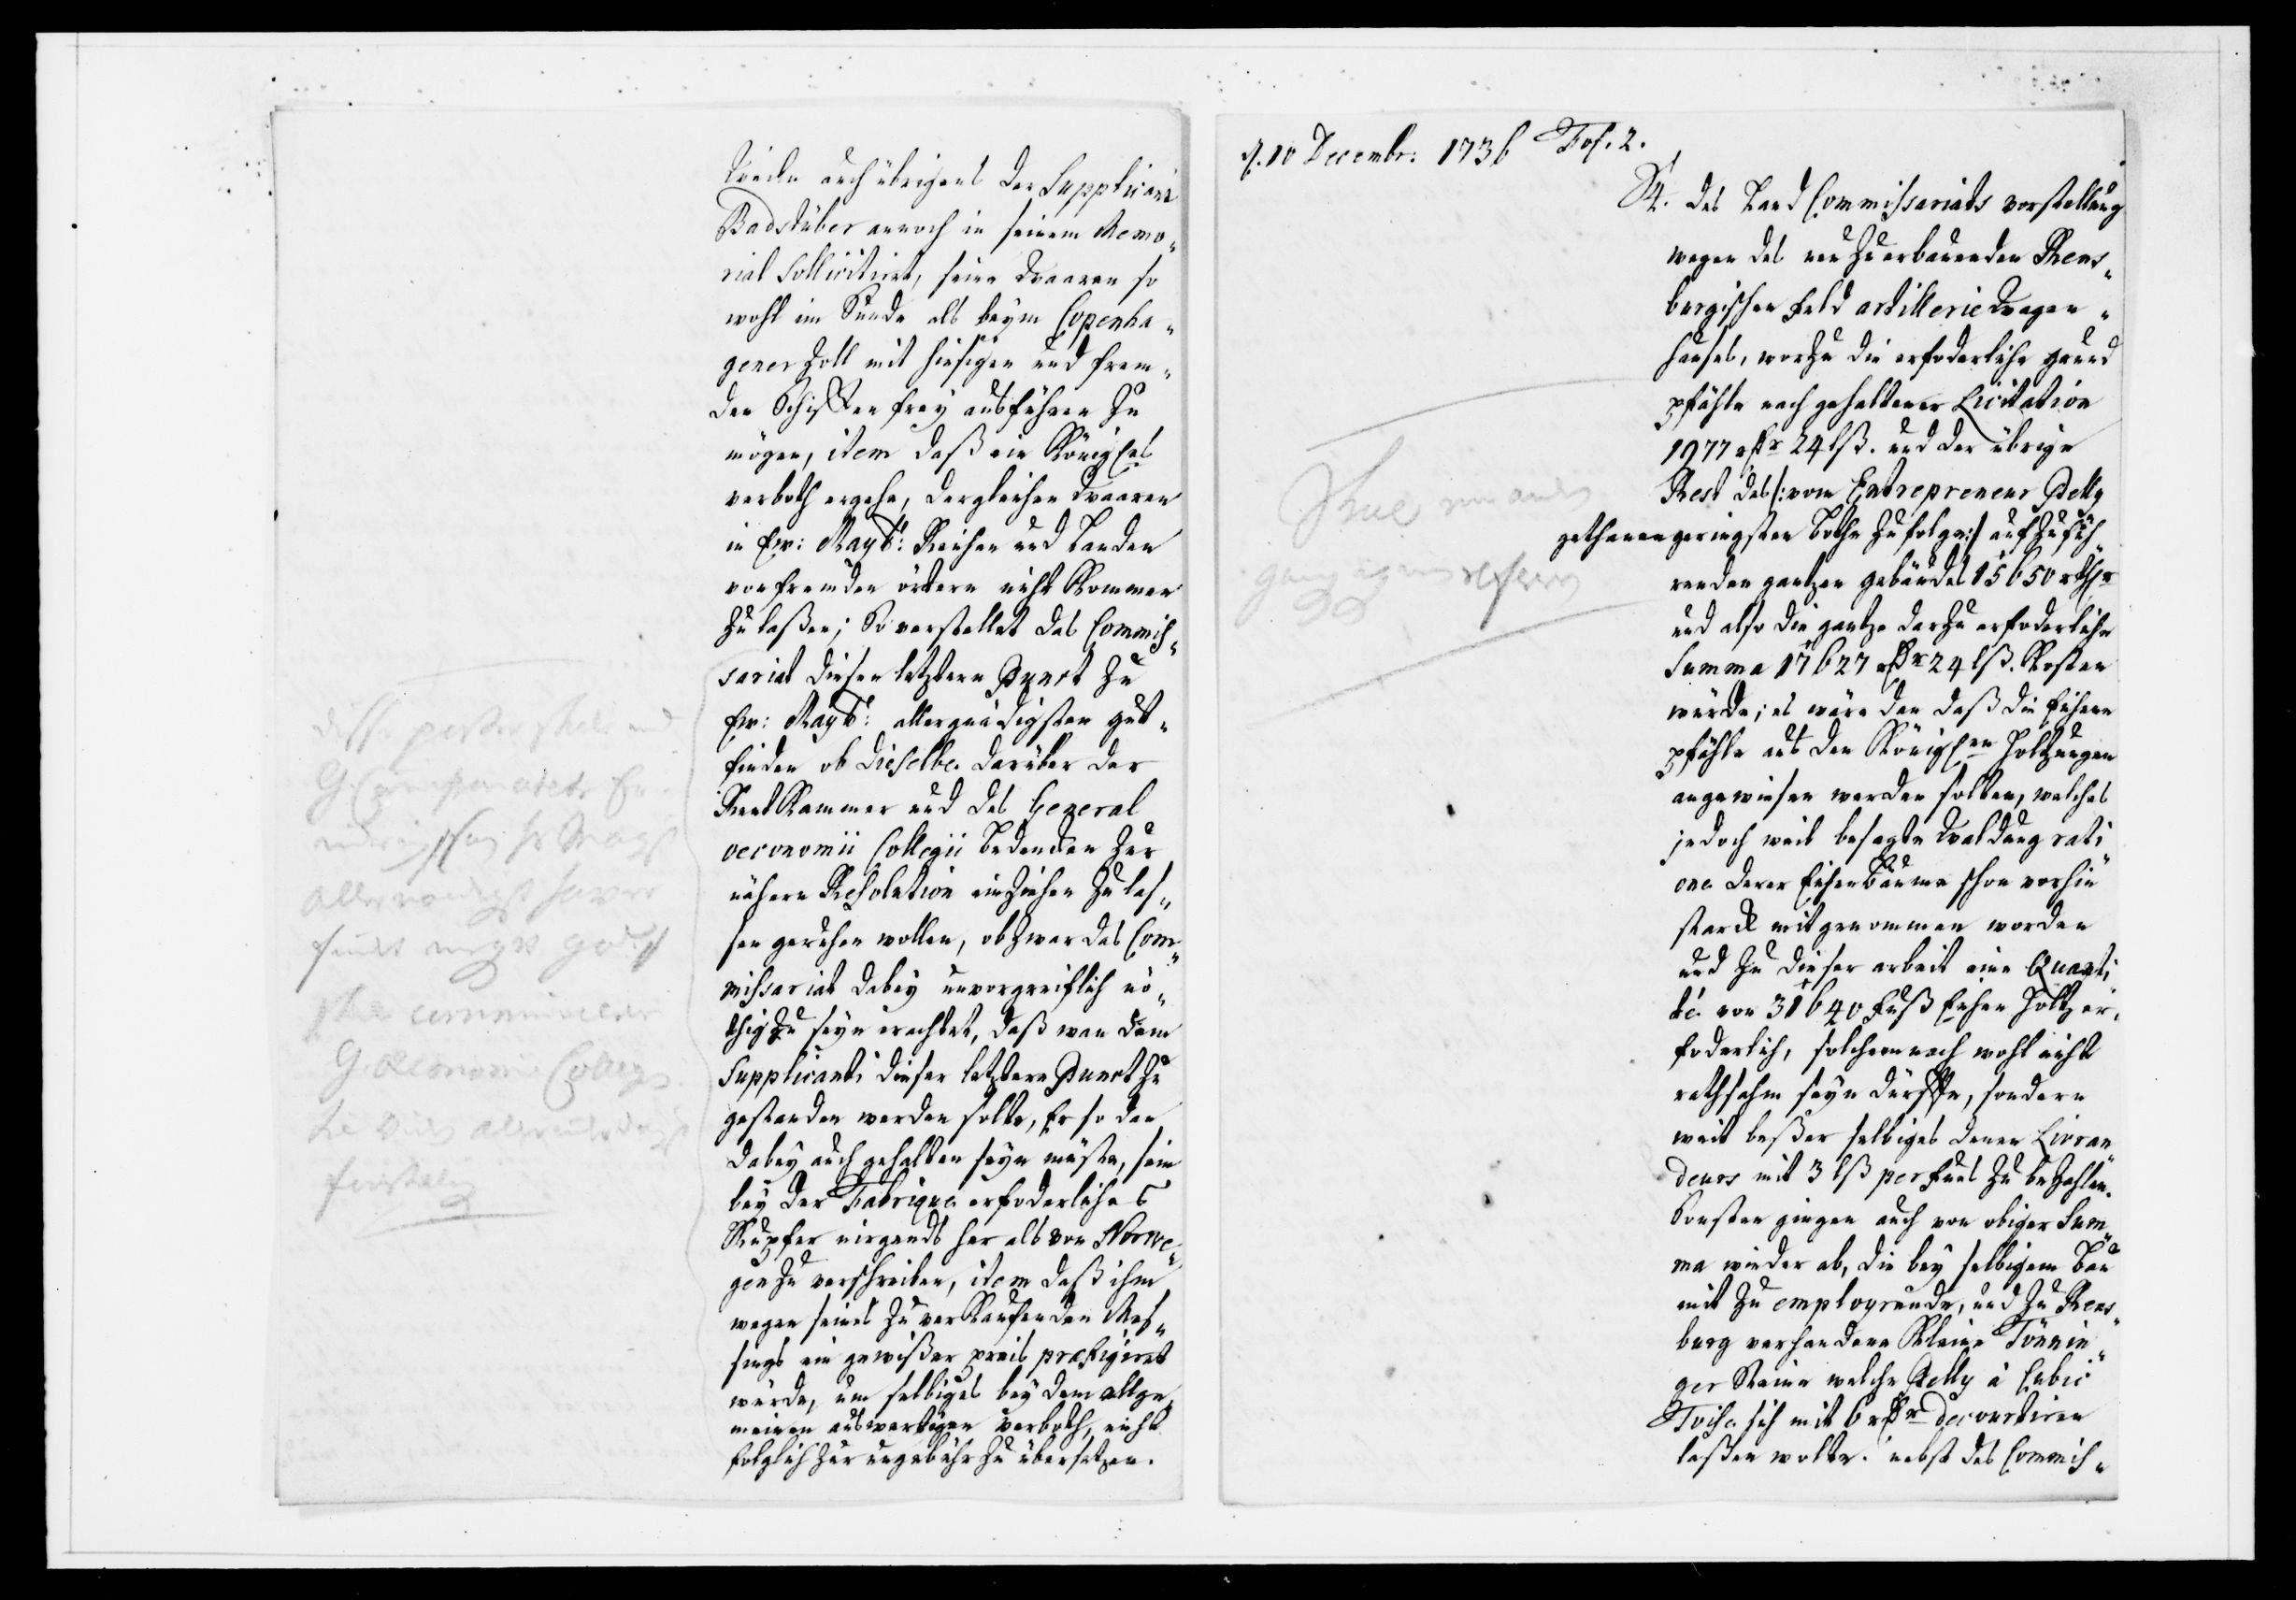 Wieder auch übrigens der Supplicant
Badstüber annoch in seinem Memo„
rial Sollicitiret, seine Waaren so
wohl im Sunde als beym Copenha„
gener Zoll mit hiesigen und frem„
den Schiffen frey ausführen zu
mögen, item daß ein Königl.
verboth ergehe, dergleichen Waaren
in Ew: Mayt: Reichen und Landen
von fremden örtern nicht kommen
zu laßen; So verstellet das Commis„
sariat diesen letztern Punct zu
Ew: Mayt: allergnädigsten gut„
finden ob dieselbe darüber der
Rent Kammer und des General
oeconomii Collegii bedencken zur
nähern Resolution einziehen zu las„
sen geruhen wollen, ob zwar das Com„
missariat dabey unvorgreiflich nö„
thig zu seyn erachtet, daß wan dem
Supplicanti dieser letztere Punct zu
gestanden werden solte, Er so dan
dabey auch gehalten seyn müste, sein
bey der Fabrique erfoderliches
Kupfer nirgends her als von Norwe„
gen zu verschreiben, item daß ihm
wegen seines zu verkaufenden Mes„
sings ein gewißer preis præfigiret
würde, um selbiges bey dem allge„
meinen auswertigen verboth, nicht
folglich zur ungebühr zu übersetzen.
disse poster
G Commissariets
allernaadigst
communicere
G. Oeconomie Colleg
d. 10 Decembr. 1736 Fol. 2.
St. des Land Commissariats vorstellung
wegen des neu zu erbauenden Rens„
burgischen Feld artillerie Wagen„
hauses, worzu die erfoderliche grund
pfähle nach gehaltener Licitation
1977 rthr 24 lß. und der übrige
Rest des /: vom Entrepreneur Pelly
gethanen geringsten bothe zufolge :/ aufzufüh„
renden gantzen gebäudes 15650 rthr
und also die gantze darzu erfoderliche
Summa 17627 rthr 24 lß. Kosten
würde; es wäre den daß die Eichene
pfähle aus den Königl.en holtzungen
angewiesen werden solten, welches
jedoch weil besagte Waldung rati„
one derer Eichen Bäume schon vorhin
starck mitgenommen worden
und zu dieser arbeit eine Quanti„
té von 31640 Fuß Eichen holtz er„
foderlich, solchem nach wohl nicht
rathsahm seyn dürffte, sondern
weit beßer selbiges denen Livran„
deurs mit 3 lß per Fues zu bezahlen.
Sonsten gingen auch von obiger Sum„
ma wieder ab, die bey selbigem bau
mit zu employrende, und zu Rens„
burg verhandene kleine Tönnin„
ger Steine welche Pelly à Cubic
Toise sich mit 6 rthr decourtiren
laßen wolte. nebst des Commis„